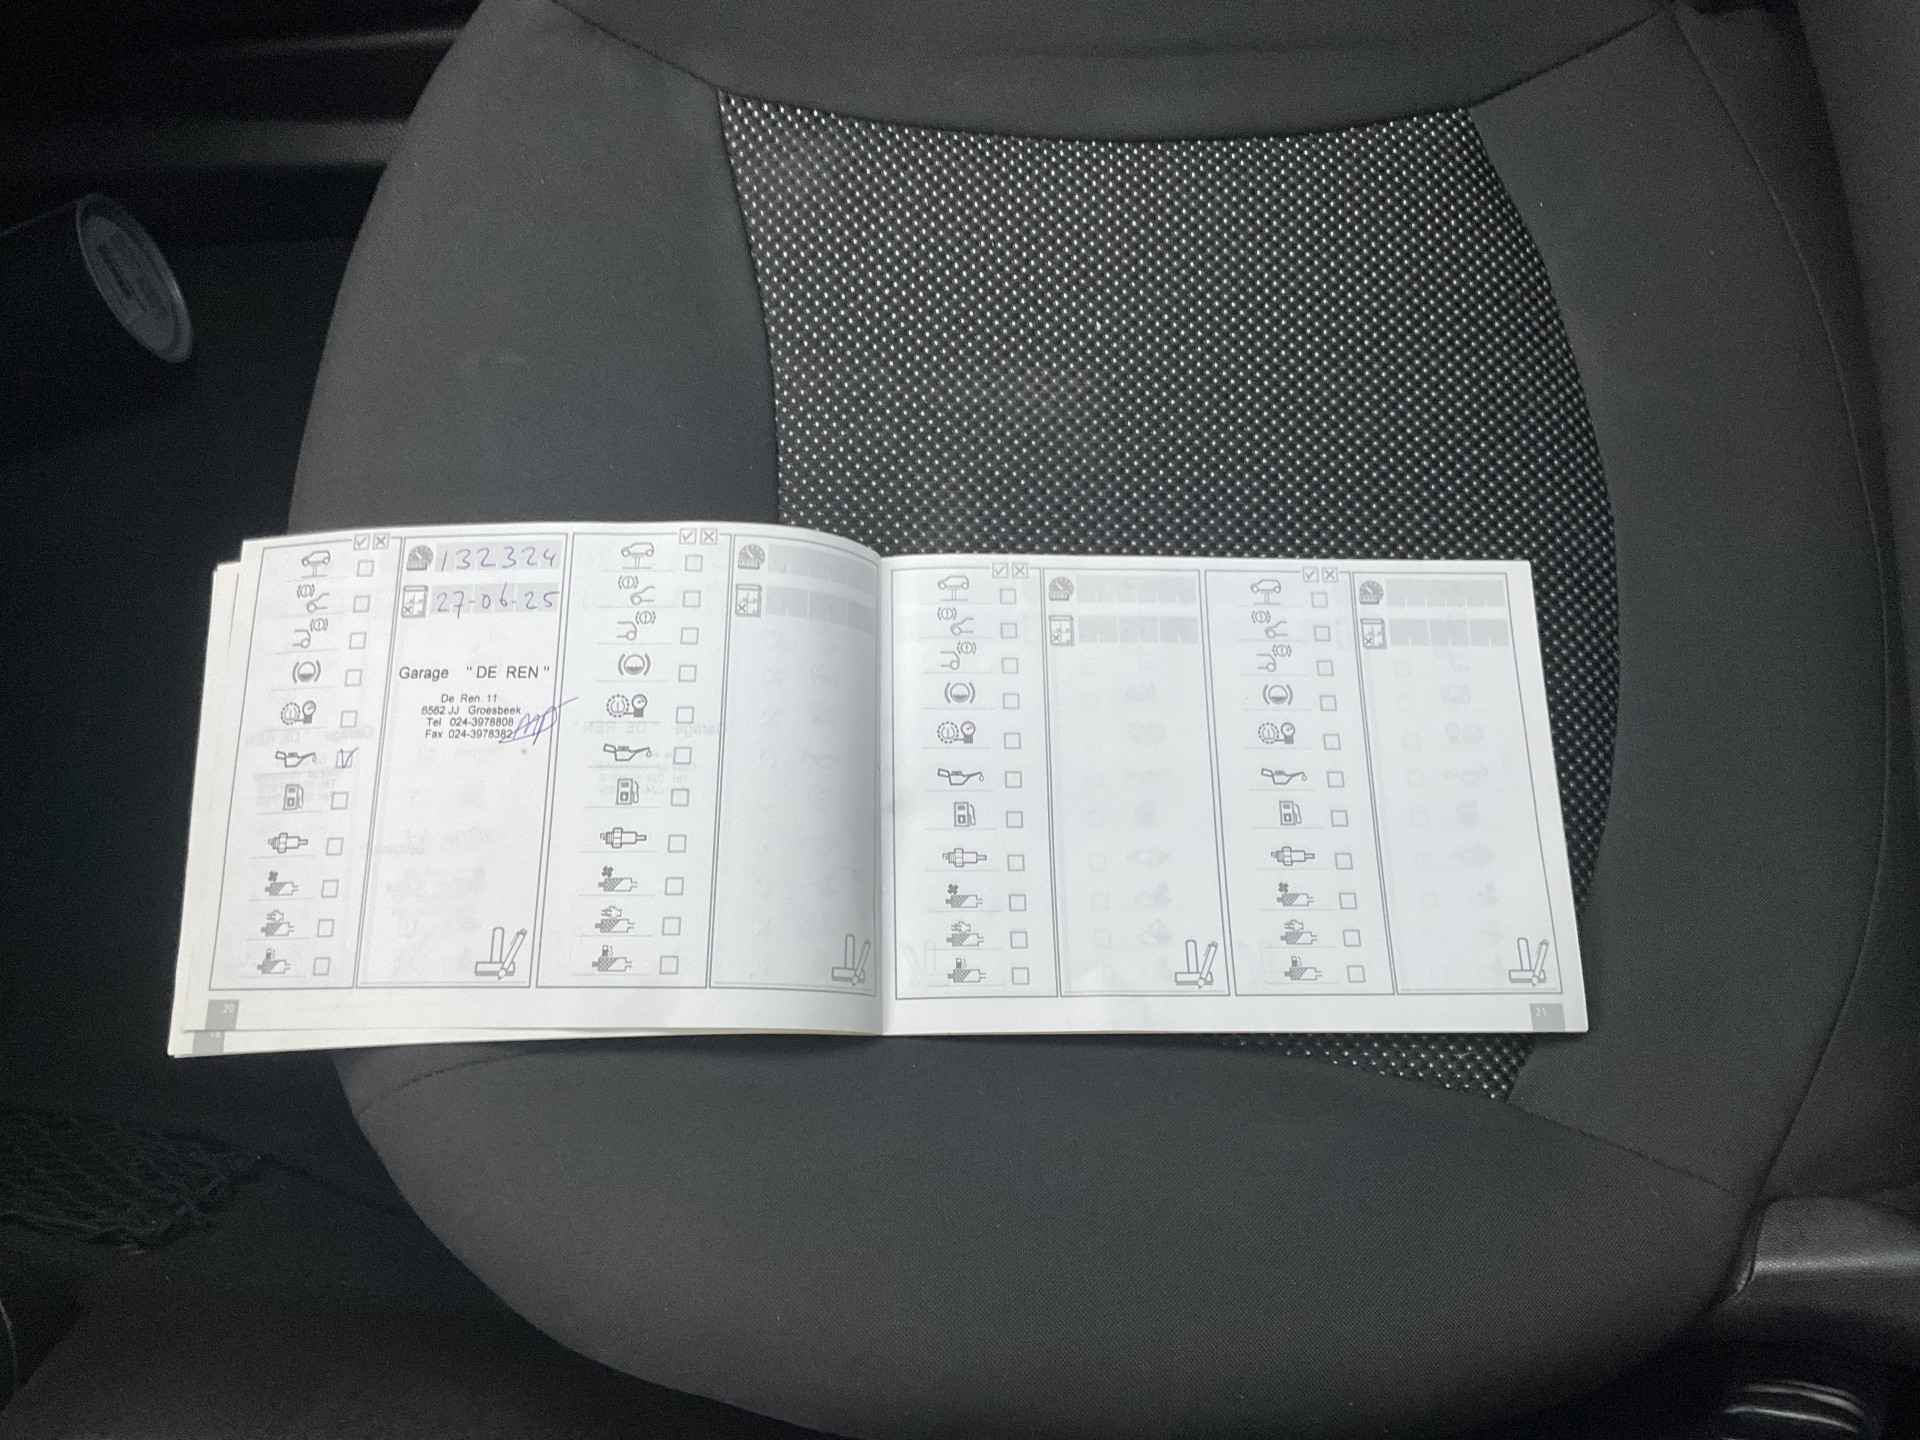 132324
27-06-25
Garage "DE REN"
De Ren 11
6562 JJ Groesbeek
Tel 024-3978808
Fax 024-3978382
20
21